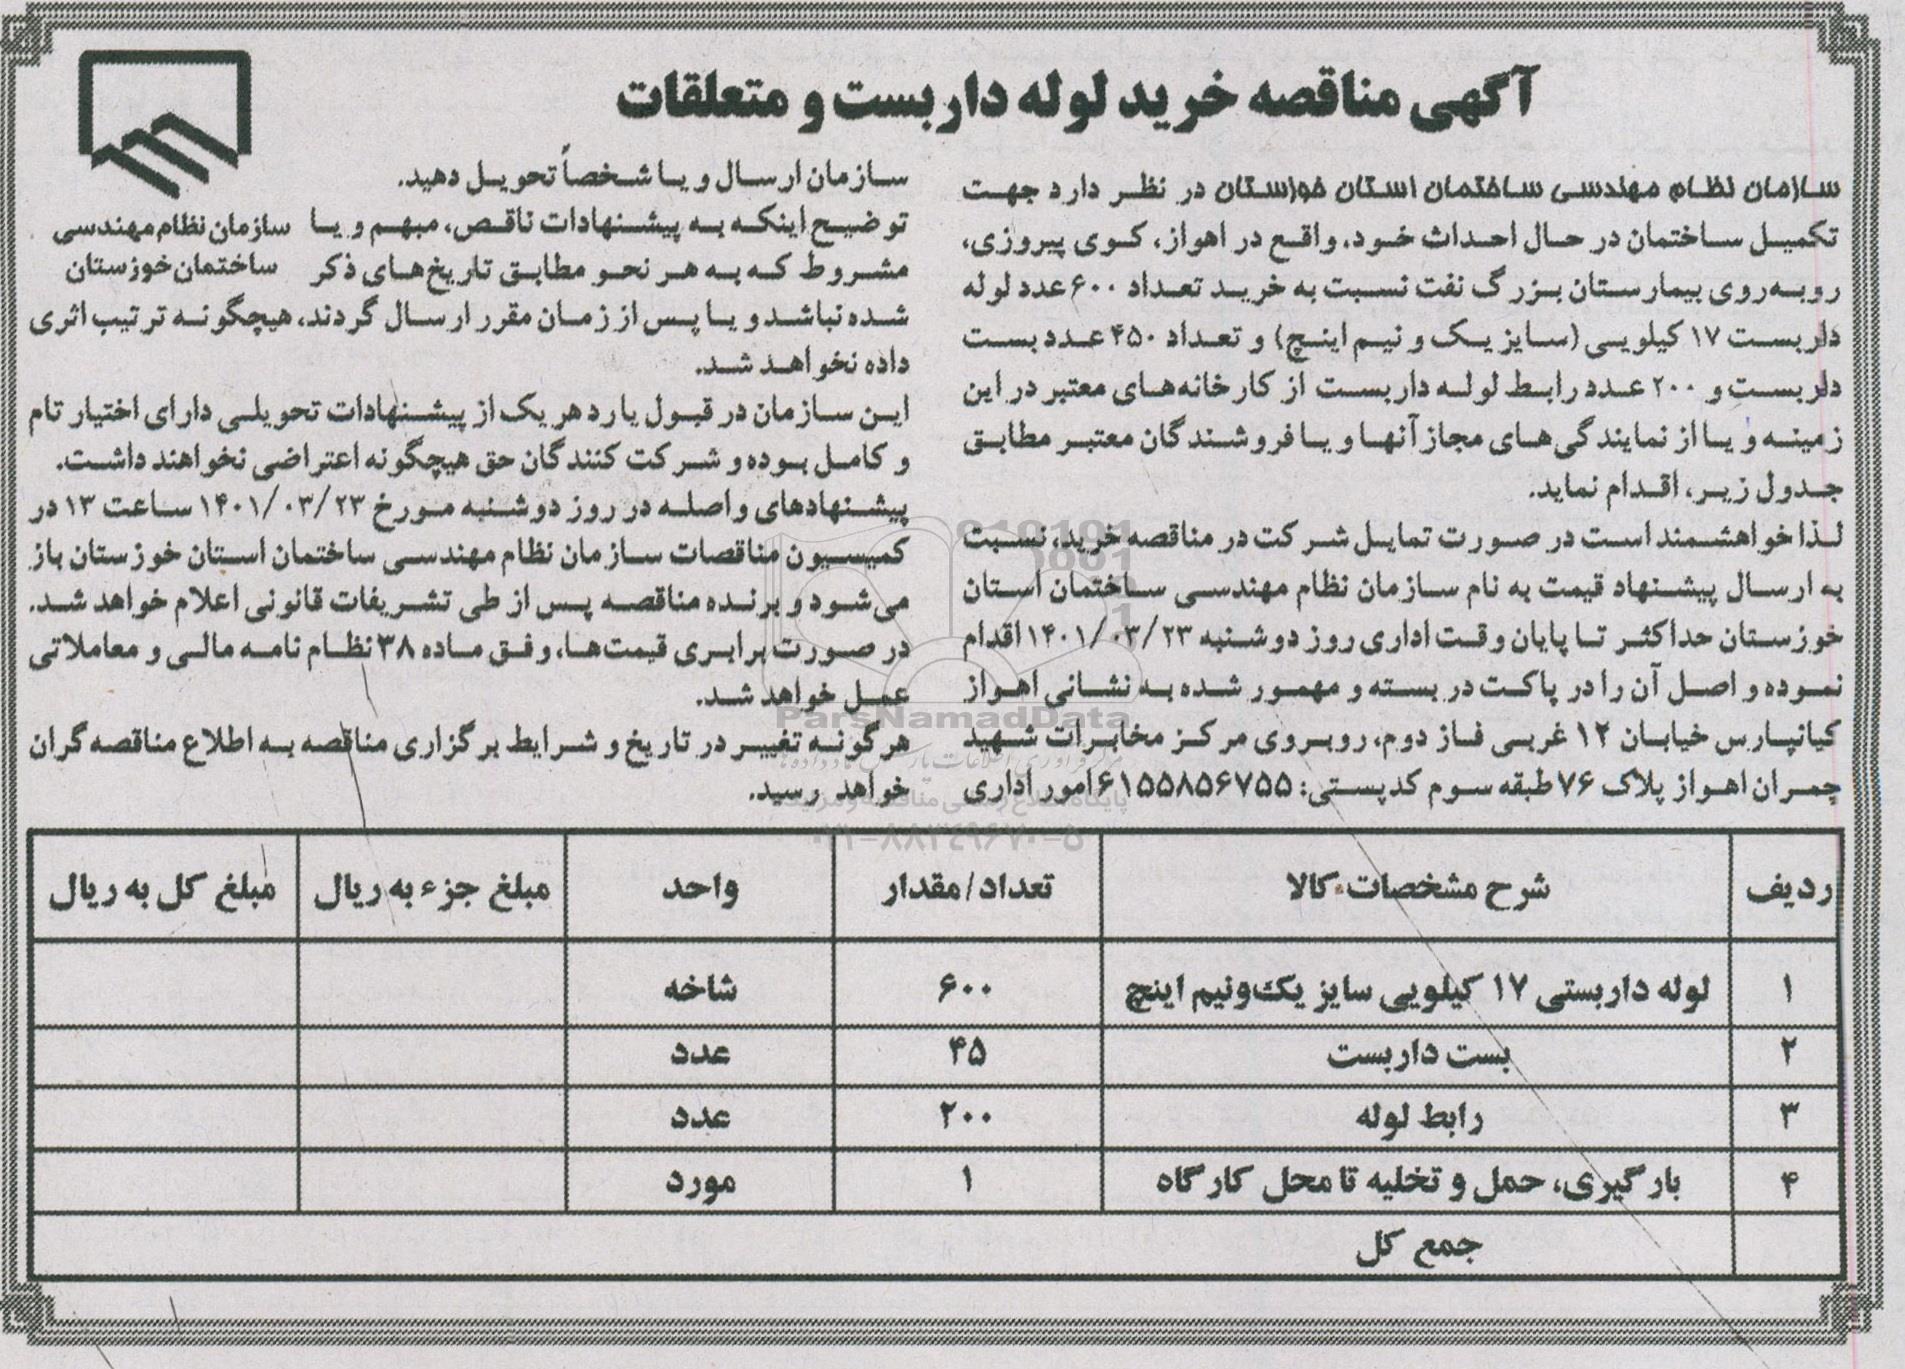 آگهی مناقصه خرید لوله داربست و متعلقات
سازمان نظام مهندسی ساختمان استان خوزستان در نظر دارد جهت
تکمیل ساختمان در حال احداث خود، واقع در اهواز، کوی پیروزی،
روبه‌روی بیمارستان بزرگ نفت نسبت به خرید تعداد ۶۰۰ عدد لوله
داربست ۱۷ کیلویی (سایز یک و نیم اینچ) و تعداد ۴۵۰ عدد بست
داربست و ۲۰۰ عدد رابط لوله داربست از کارخانه‌های معتبر در این
زمینه و یا از نمایندگی‌های مجاز آنها و یا فروشندگان معتبر مطابق
جدول زیر، اقدام نماید.
لذا خواهشمند است در صورت تمایل شرکت در مناقصه خرید، نسبت
به ارسال پیشنهاد قیمت به نام سازمان نظام مهندسی ساختمان استان
خوزستان حداکثر تا پایان وقت اداری روز دوشنبه ۱۴۰۱/۰۳/۲۳ اقدام
نموده و اصل آن را در پاکت در بسته و مهمور شده به نشانی اهواز
کیانپارس خیابان ۱۲ غربی فاز دوم، روبروی مرکز مخابرات شهید
چمران اهواز پلاک ۷۶ طبقه سوم کدپستی: ۶۱۵۵۸۵۶۷۵۵ امور اداری
سازمان ارسال و یا شخصاً تحویل دهید.
توضیح اینکه به پیشنهادات ناقص، مبهم و یا
مشروط که به هر نحو مطابق تاریخ‌های ذکر
شده نباشد و یا پس از زمان مقرر ارسال گردند، هیچگونه ترتیب اثری
داده نخواهد شد.
این سازمان در قبول یا رد هر یک از پیشنهادات تحویلی دارای اختیار تام
و کامل بوده و شرکت کنندگان حق هیچگونه اعتراضی نخواهند داشت.
پیشنهادهای واصله در روز دوشنبه مورخ ۱۴۰۱/۰۳/۲۳ ساعت ۱۳ در
کمیسیون مناقصات سازمان نظام مهندسی ساختمان استان خوزستان باز
می‌شود و برنده مناقصه پس از طی تشریفات قانونی اعلام خواهد شد.
در صورت برابری قیمت‌ها، وفق ماده ۳۸ نظام نامه مالی و معاملاتی
عمل خواهد شد.
هرگونه تغییر در تاریخ و شرایط برگزاری مناقصه به اطلاع مناقصه‌گران
خواهد رسید.
سازمان نظام مهندسی
ساختمان خوزستان
ParsNamadData
۰۲۱-۸۸۳۴۹۶۷۰-۵
ردیف شرح مشخصات کالا تعداد/مقدار واحد مبلغ جزء به ریال مبلغ کل به ریال
۱ لوله داربستی ۱۷ کیلویی سایز یک‌ونیم اینچ ۶۰۰ شاخه
۲ بست داربست ۴۵ عدد
۳ رابط لوله ۲۰۰ عدد
۴ بارگیری، حمل و تخلیه تا محل کارگاه ۱ مورد
جمع کل